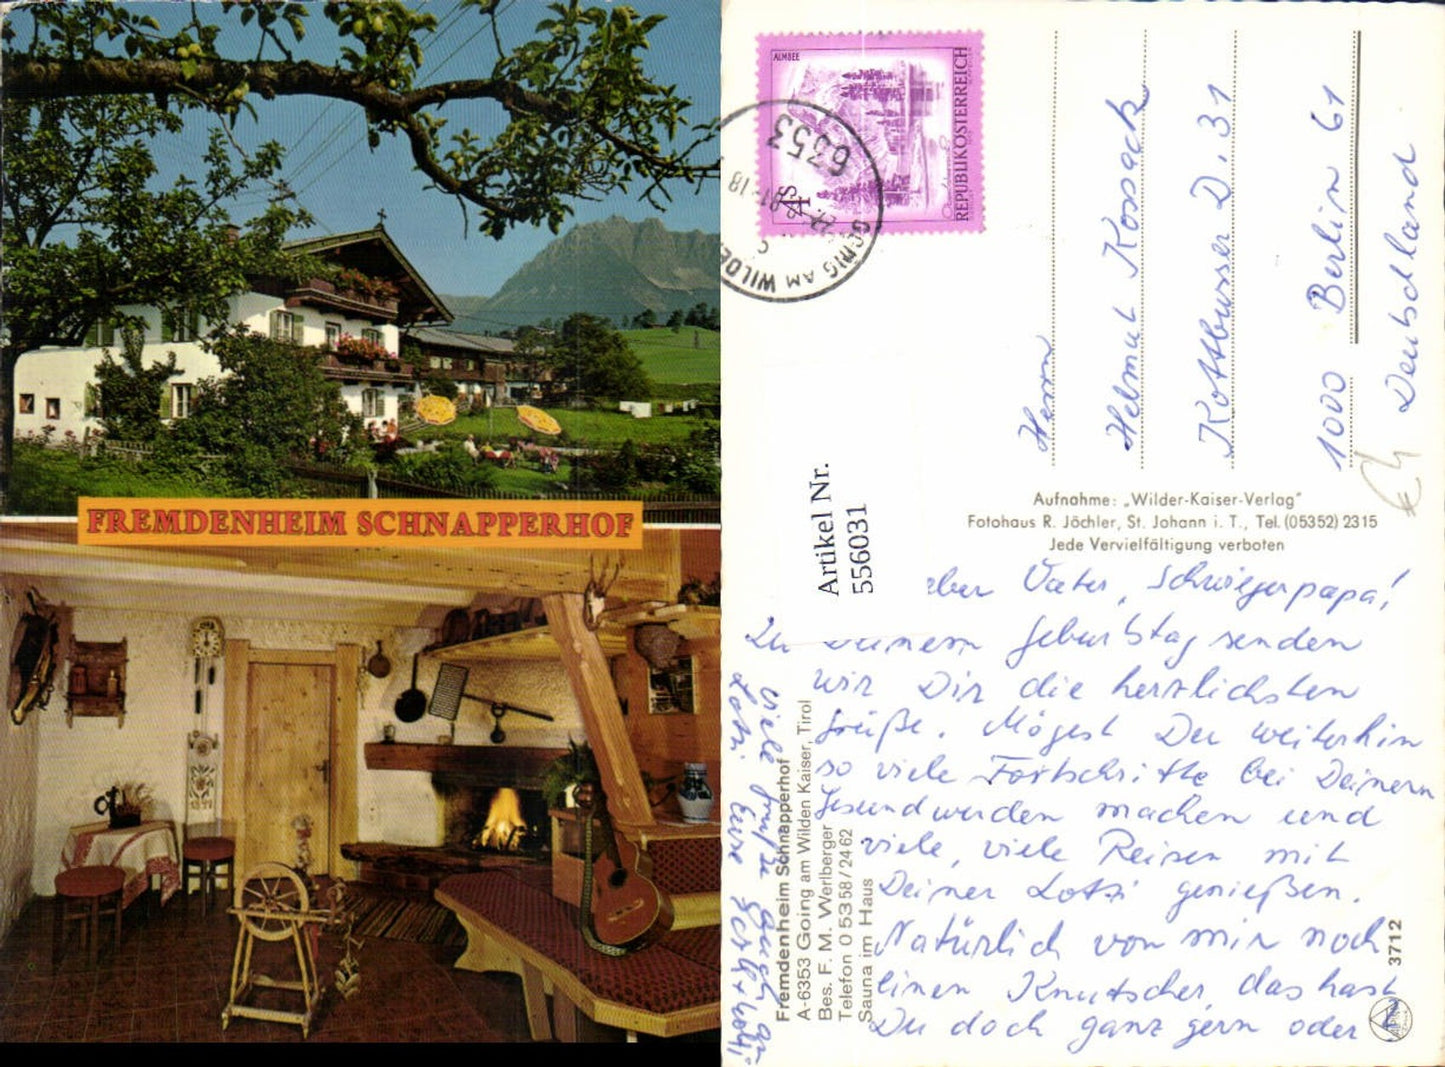 FREMDENHEIM SCHNAPPERHOF
1897
ALMSEE
4 S
REPUBLIK ÖSTERREICH
6353
GOING AM WILDE
Herrn
Helmut Kossack
Kottbusser D. 31
1000 Berlin 61
Deutschland
€4
Artikel Nr.
556031
Aufnahme: „Wilder-Kaiser-Verlag"
Fotohaus R. Jöchler, St. Johann i. T., Tel. (05352) 2315
Jede Vervielfältigung verboten
Fremdenheim Schnapperhof
A-6353 Going am Wilden Kaiser, Tirol
Bes. F. M. Werlberger
Telefon 0 53 58 / 24 62
Sauna im Haus
3712
eber Vater, Schwiegerpapa!
Zu Deinem Geburtstag senden
wir Dir die herzlichsten
Grüße. Mögest Du weiterhin
so viele Fortschritte bei Deinem
Gesundwerden machen und
viele, viele Reisen mit
Deiner Lotti genießen.
Natürlich von mir noch
einen Knutscher, das hast
Du doch ganz gern oder
viele Grüße auch an
Lotti Eure